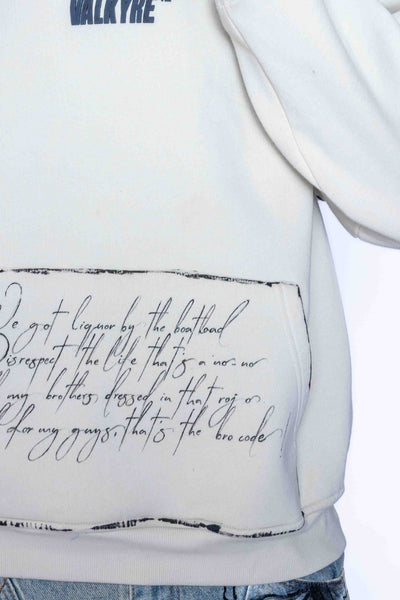 VALKYRE
e got liquor by the boatload
Disrespect the life that's a no-no
my brothers dressed in that roj o
for my guys, that's the bro code!